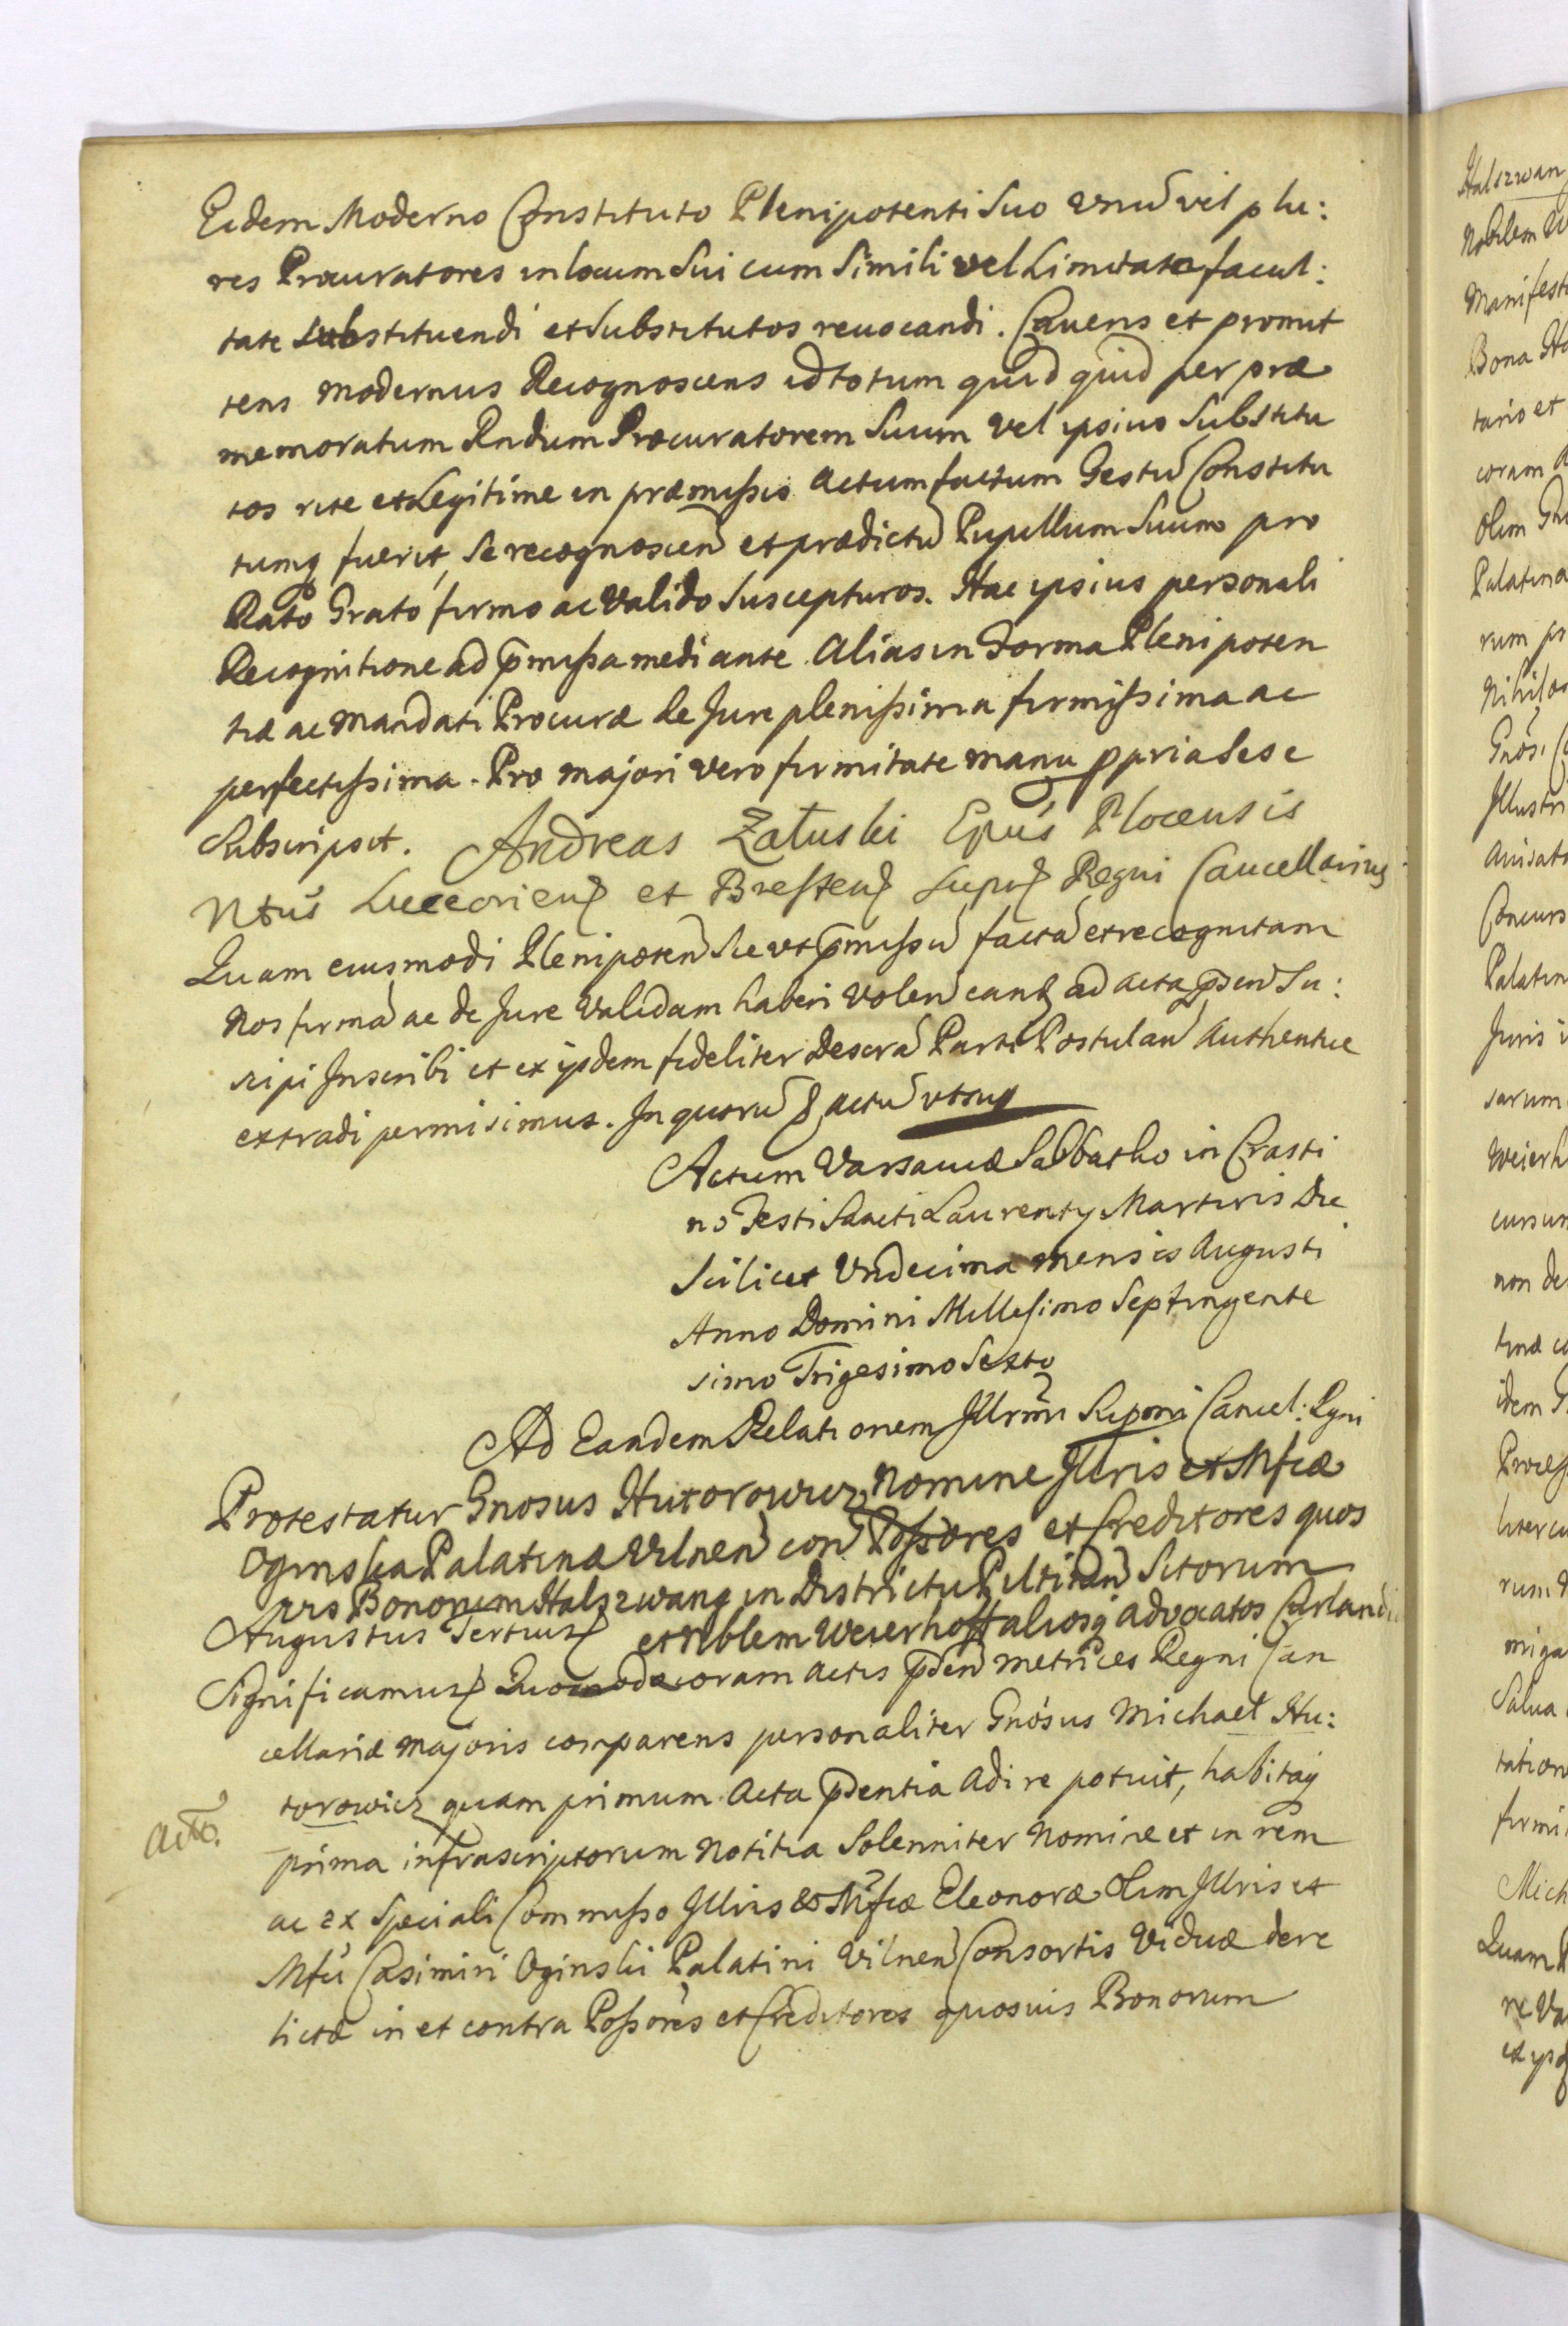 Eidem Moderno Constituto Plenipotenti Suo Vnũ vel plu:
res Procuratores in locum Sui cum Simili vel Limitata facul:
tate Substituendi et Substitutos reuocandi. Cavens et promit
tens modernus Recognoscens id totum quid quid per præ
memoratum Rndum Procuratorem Suum vel ipsius Substitu
tos rite et Legitime in præmissis Actum factum Gestũ Constitu
tumq fuerit, Se recognoscen̄ et prædictũ Pupillum Suum pro
Rato Grato firmo ac Valido Suscepturos. Hac ipsius personali
Recognitione ad p̄missa mediante. Alias in Forma Plenipoten
tiæ ac Mandati Procuræ de Jure plenissima firmissima ac
perfectissima. Pro majori vero firmitate manu ppria Sese
Subscripsit. Andreas Załuski Epus Plocensis
Ntus Lucceorien et Bresten Supr Regni Cancellarius
Quam eiusmodi Plenipoten Sic vt p̄missũ factã et recognitam
Nos firmã ac de Jure Validam haberi Volen eand ad acta p̄sen Su:
scipi Inscribi et ex ijsdem fideliter Descrã Parti Postulan Authentice
extradi permisimus. In quorũ & actũ vtsup
Actum Varsaviæ Sabbatho in Crasti
no Festi Sancti Laurentij Martiris Die
Scilicet Vndecima mensis Augusti
Anno Domini Millesimo Septingente
simo Trigesimo Sexto
Ad Eandem Relationem Illrmi Suponi Cancel: Rgni
Protestatur Gnosus Hutorowicz Nomine Illris et Mfcæ
Oginska Palatinæ Vilnen con Possores et Creditores quos
uis Bonorum Halszwang in Districtu Piltinen Sitorum
Augustus Tertius et Nblem Weierhoff aliosq advocatos Curlandiæ
Significamus Quomodo coram Actis p̄den Metrices Regni Can
cellariæ Majoris comparens personaliter Gnosus Michael Hu:
torowicz quam primum Acta p̄dentia Adire potuit, habitaq
Actō.
prima infrascriptorum Notitia Solenniter Nomine et in rem
ac ex Speciali Commisso Illris & Mfcæ Eleonoræ Olim Illris et
Mfci Casimiri Oginski Palatini Vilnen Consortis Viduæ dere
lictæ in et contra Possores et Creditores quosuis Bonorum